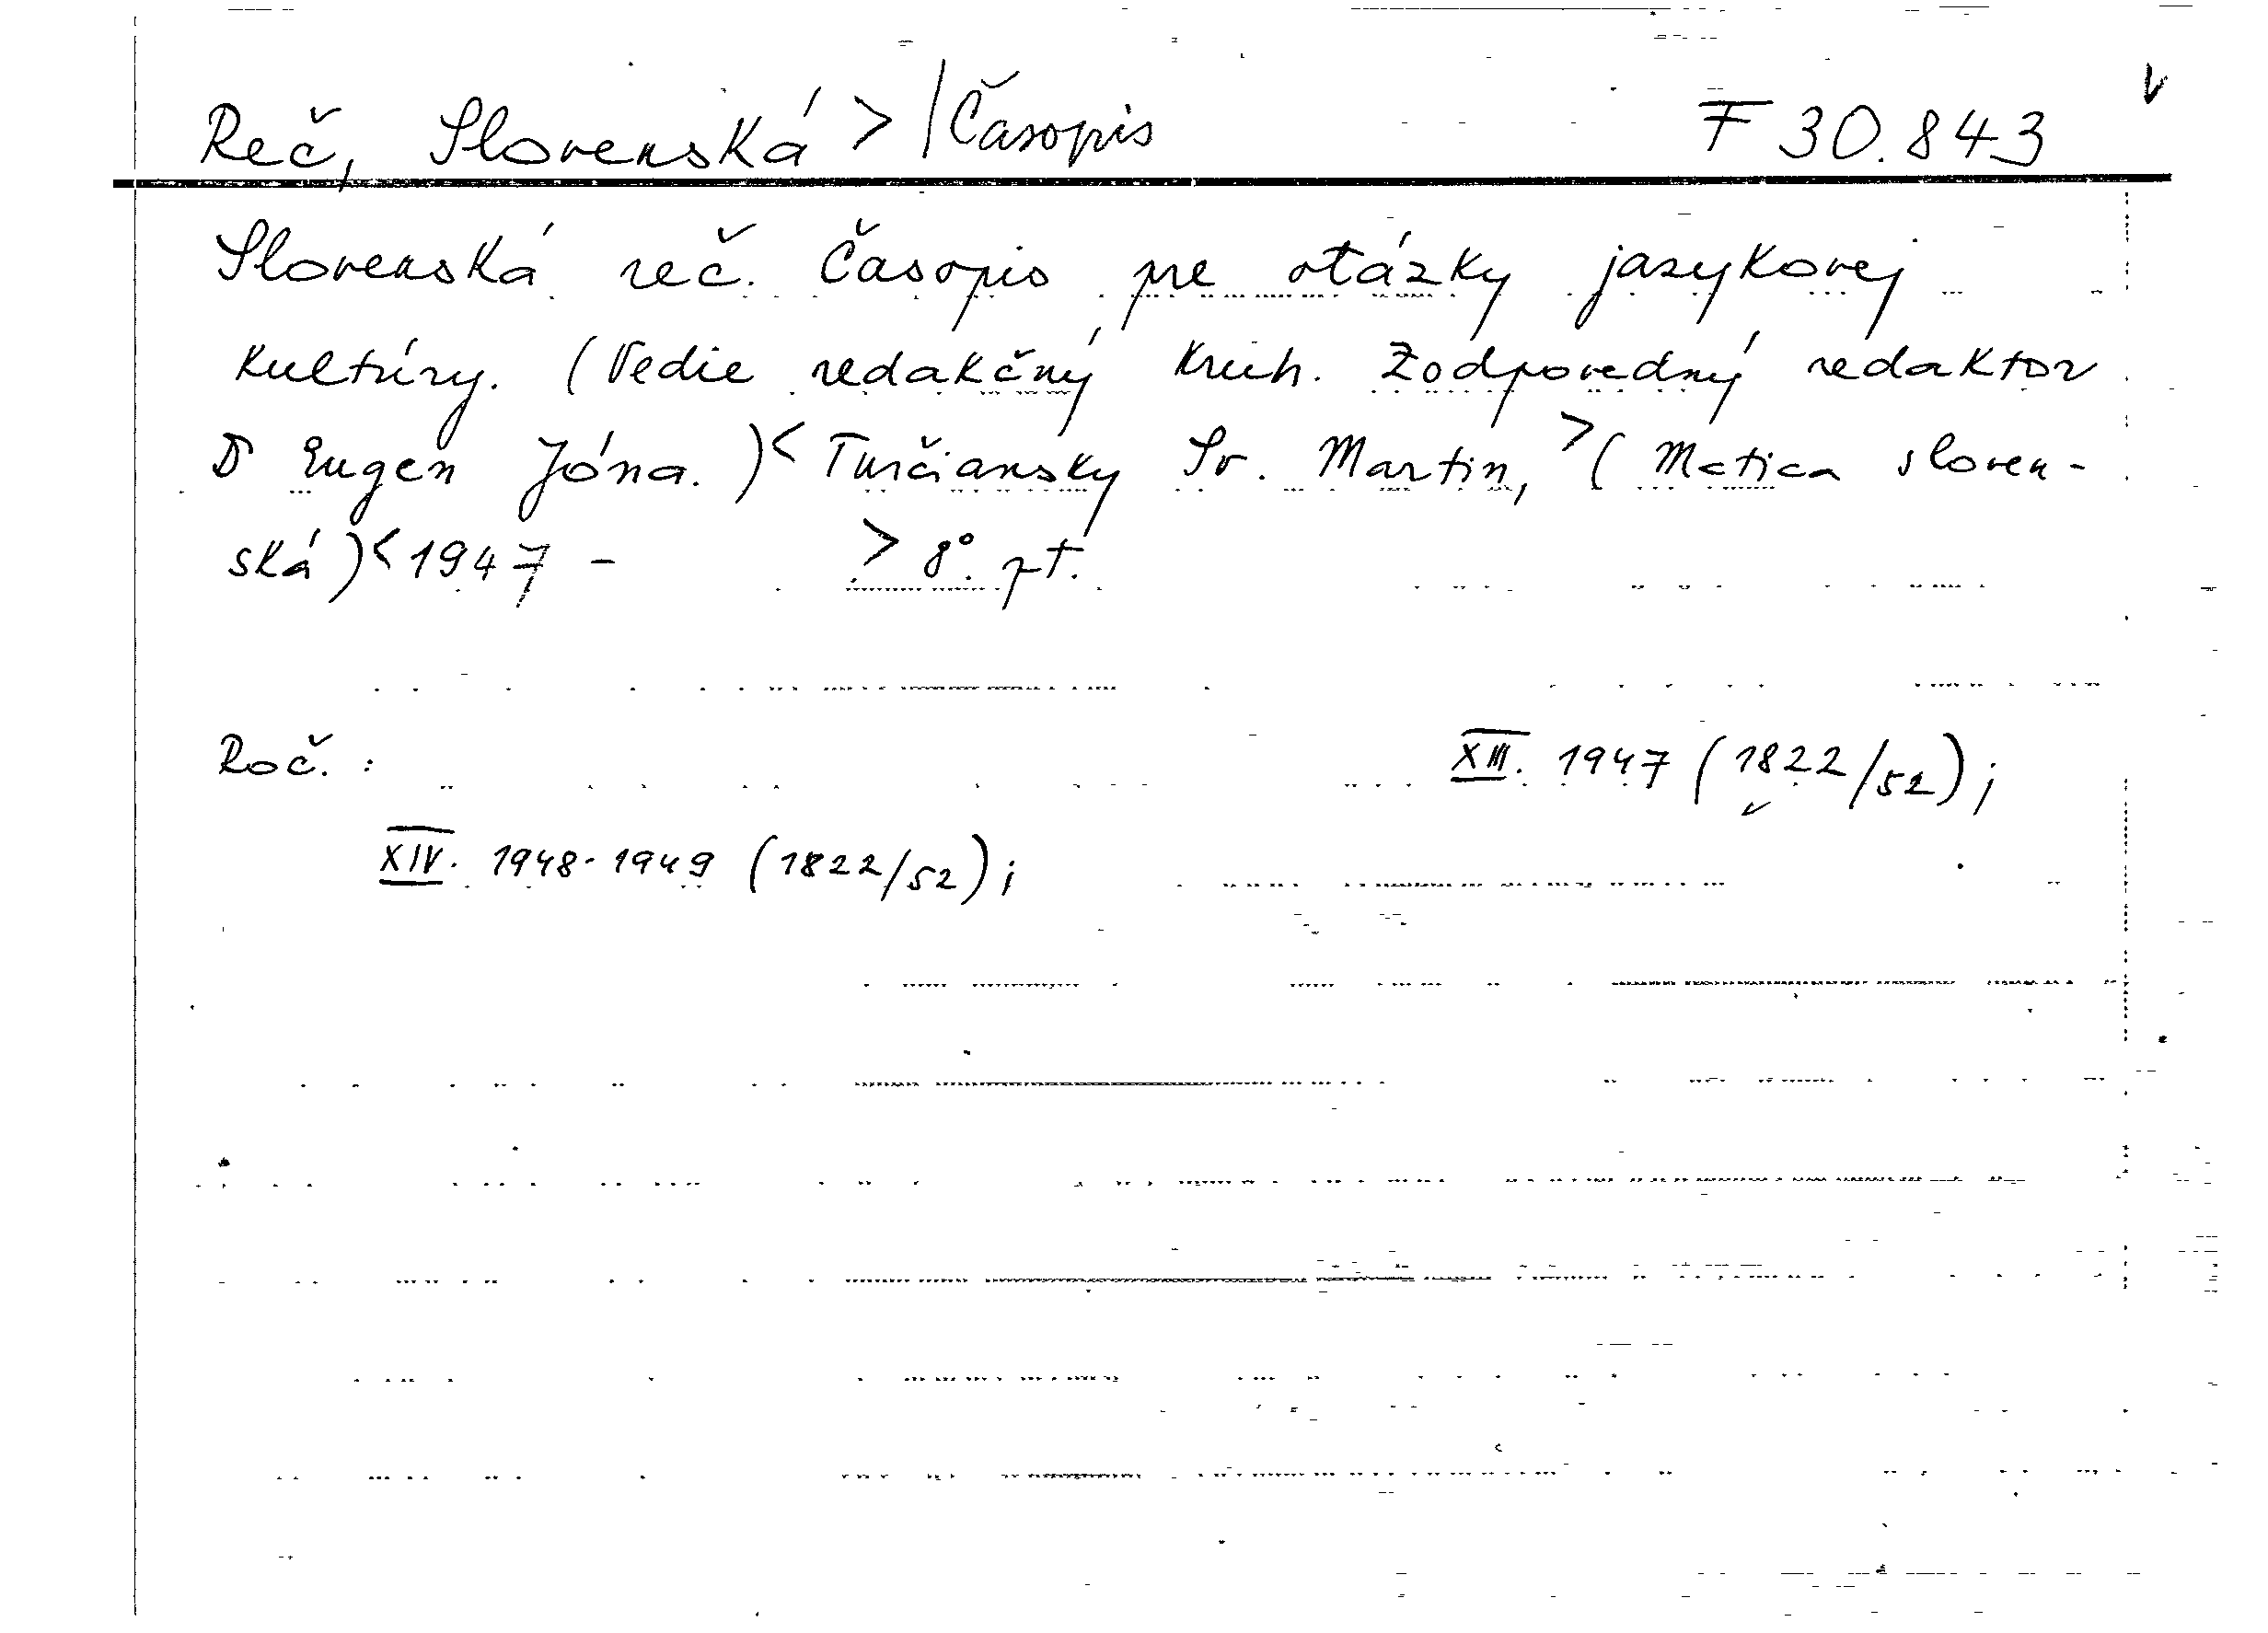 Reč, Slovenská > | Časopis F 30.843
Slovenská reč. Časopis pre otázky jazykovej
kultúry. (Vedie redakčný kruh. Zodpovedný redaktor
Dr Eugen Jóna.)< Turčiansky Sv. Martin, >( Matica sloven-
ská)< 1947 - > 8°. pt.
Roč. : XIII. 1947 (1822/52);
XIV. 1948-1949 (1822/52);